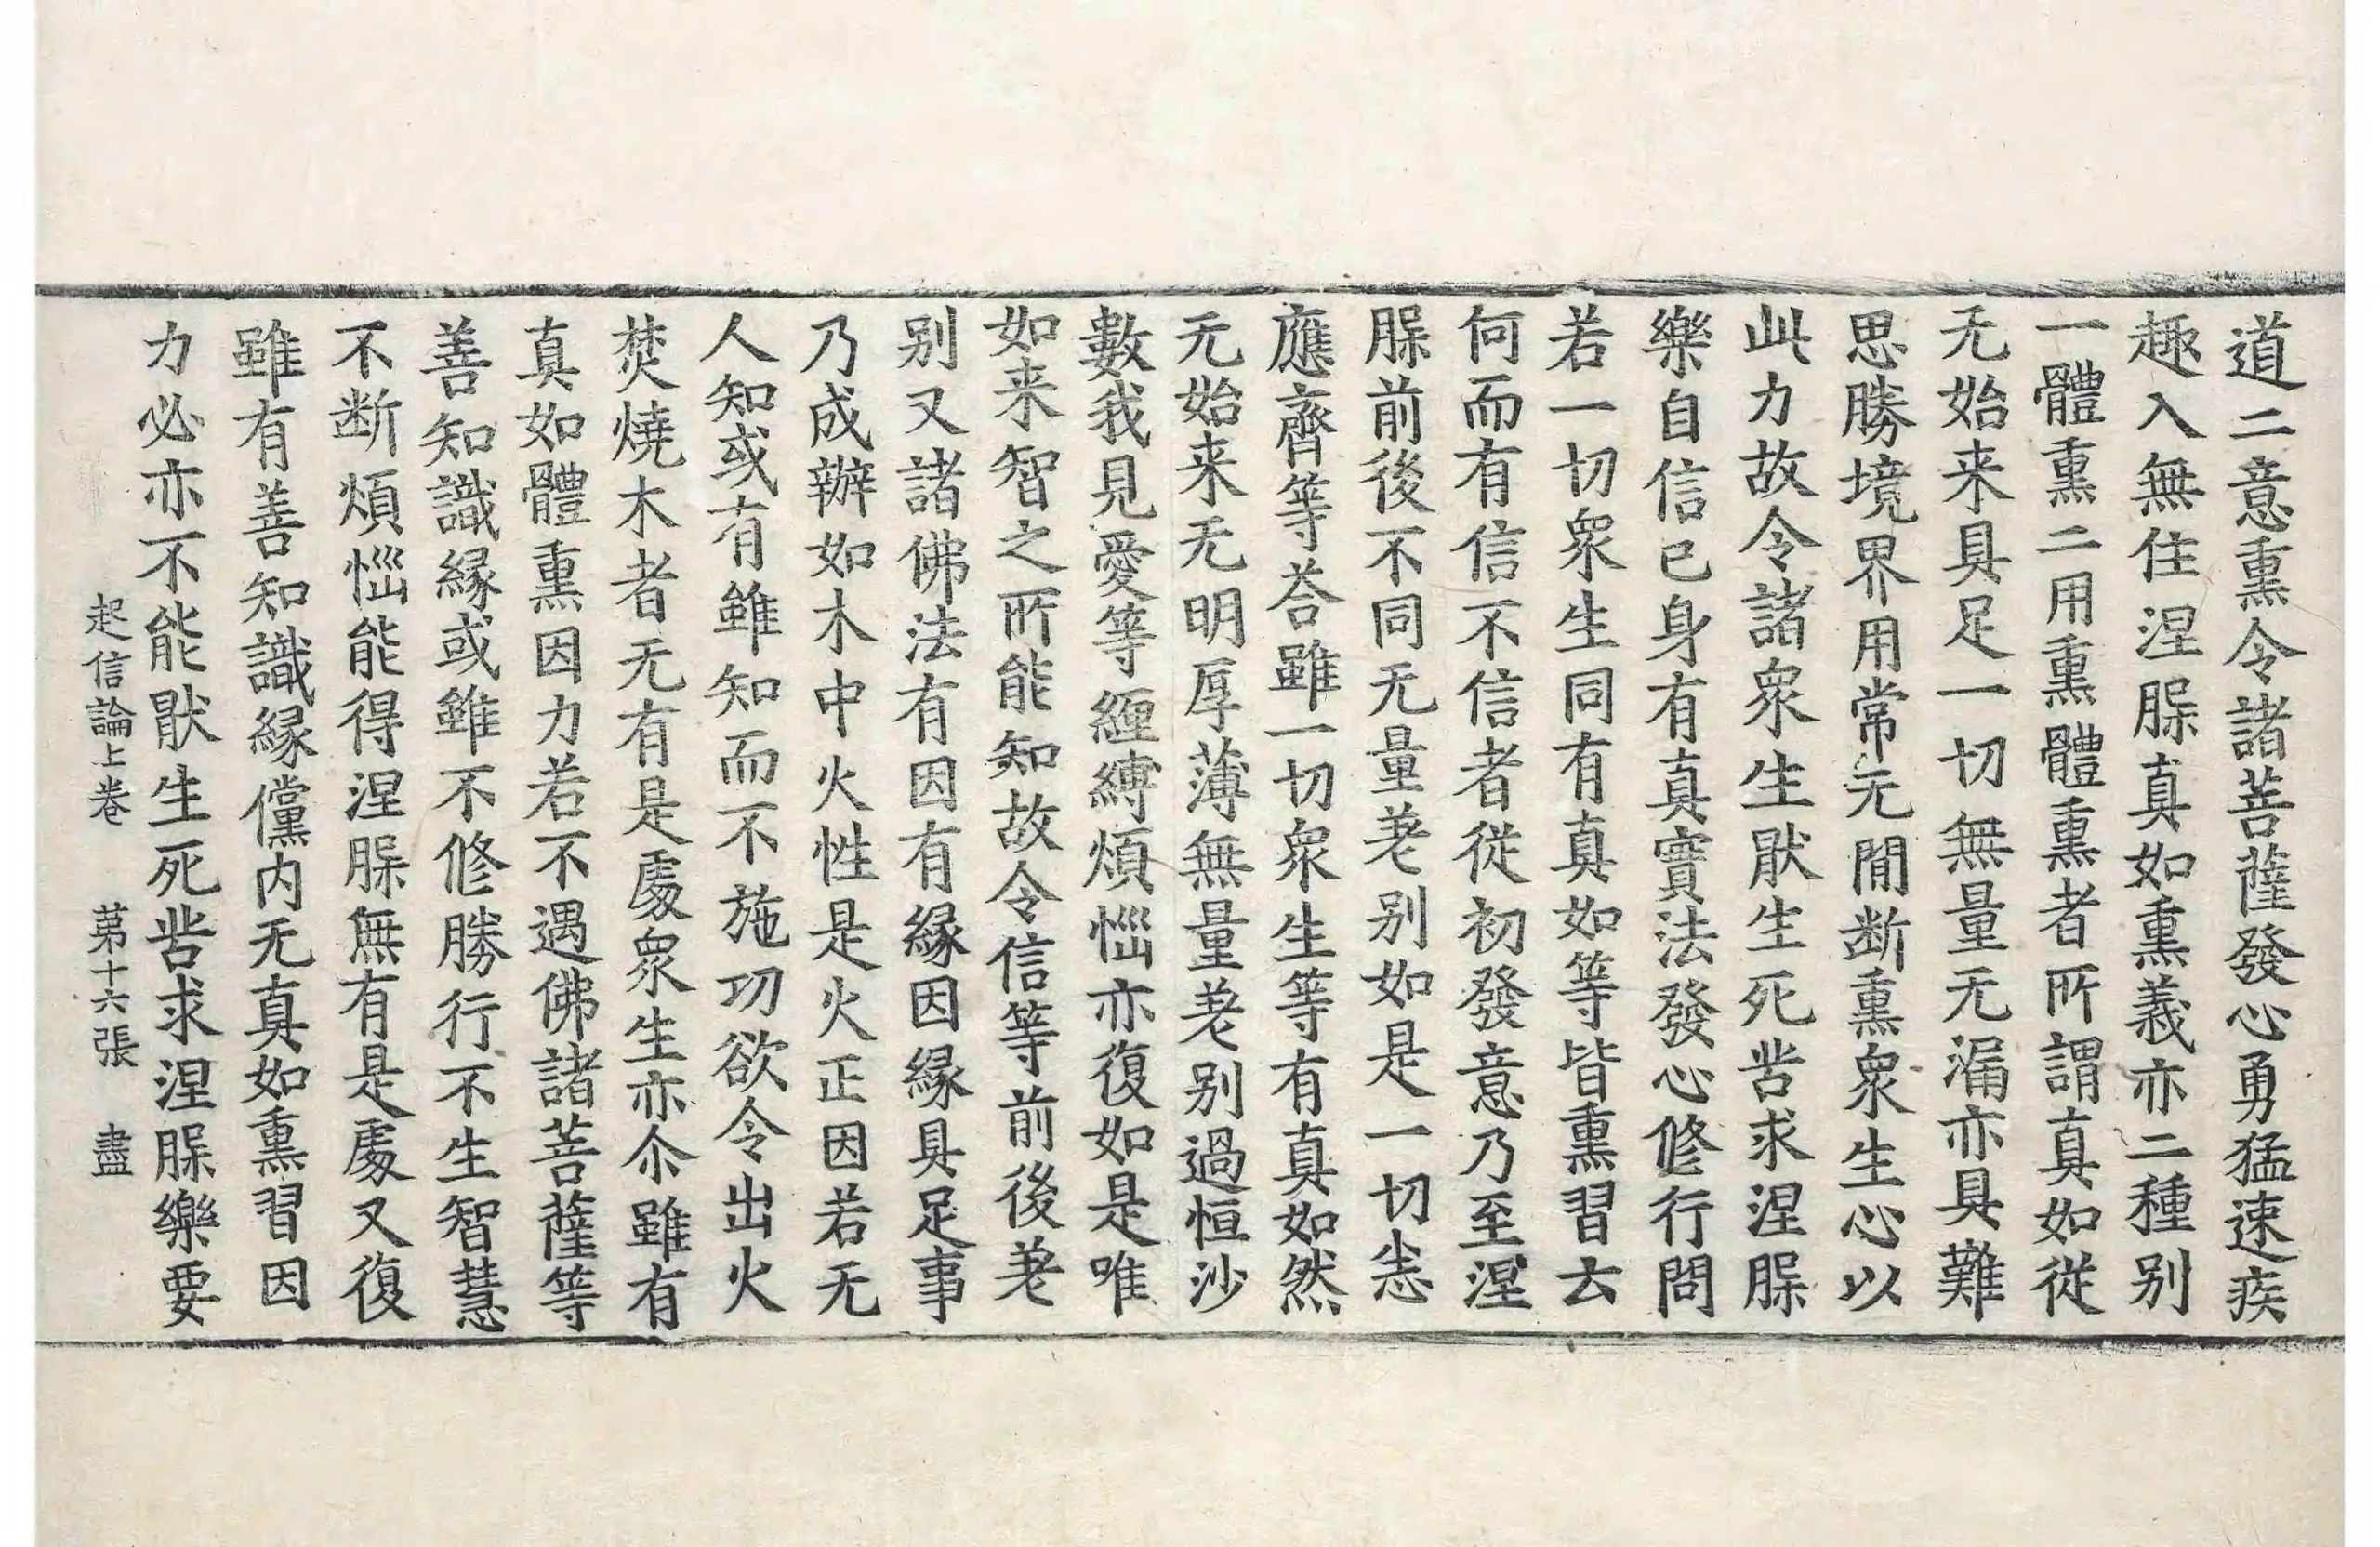 道二意熏令諸菩薩發心勇猛速疾
趣入無住涅槃真如熏義亦二種别
一體熏二用熏體熏者所謂真如從
无始来具足一切無量无漏亦具難
思勝境界用常无間断熏衆生心以
此力故令諸衆生猒生死苦求涅槃
樂自信已身有真實法發心修行問
若一切衆生同有真如等皆熏習云
何而有信不信者從初發意乃至涅
槃前後不同无量差别如是一切悉
應齊等荅雖一切衆生等有真如然
无始来无明厚薄無量差别過恒沙
數我見愛等纏縛煩惱亦復如是唯
如来智之所能知故令信等前後差
别又諸佛法有因有縁因縁具足事
乃成辦如木中火性是火正因若无
人知或有雖知而不施功欲令出火
焚燒木者无有是處衆生亦尒雖有
真如體熏因力若不遇佛諸菩薩等
善知識縁或雖不修勝行不生智慧
不断煩惱能得涅槃無有是處又復
雖有善知識縁儻内无真如熏習因
力必亦不能猒生死苦求涅槃樂要
起信論上卷 苐十六張 盡